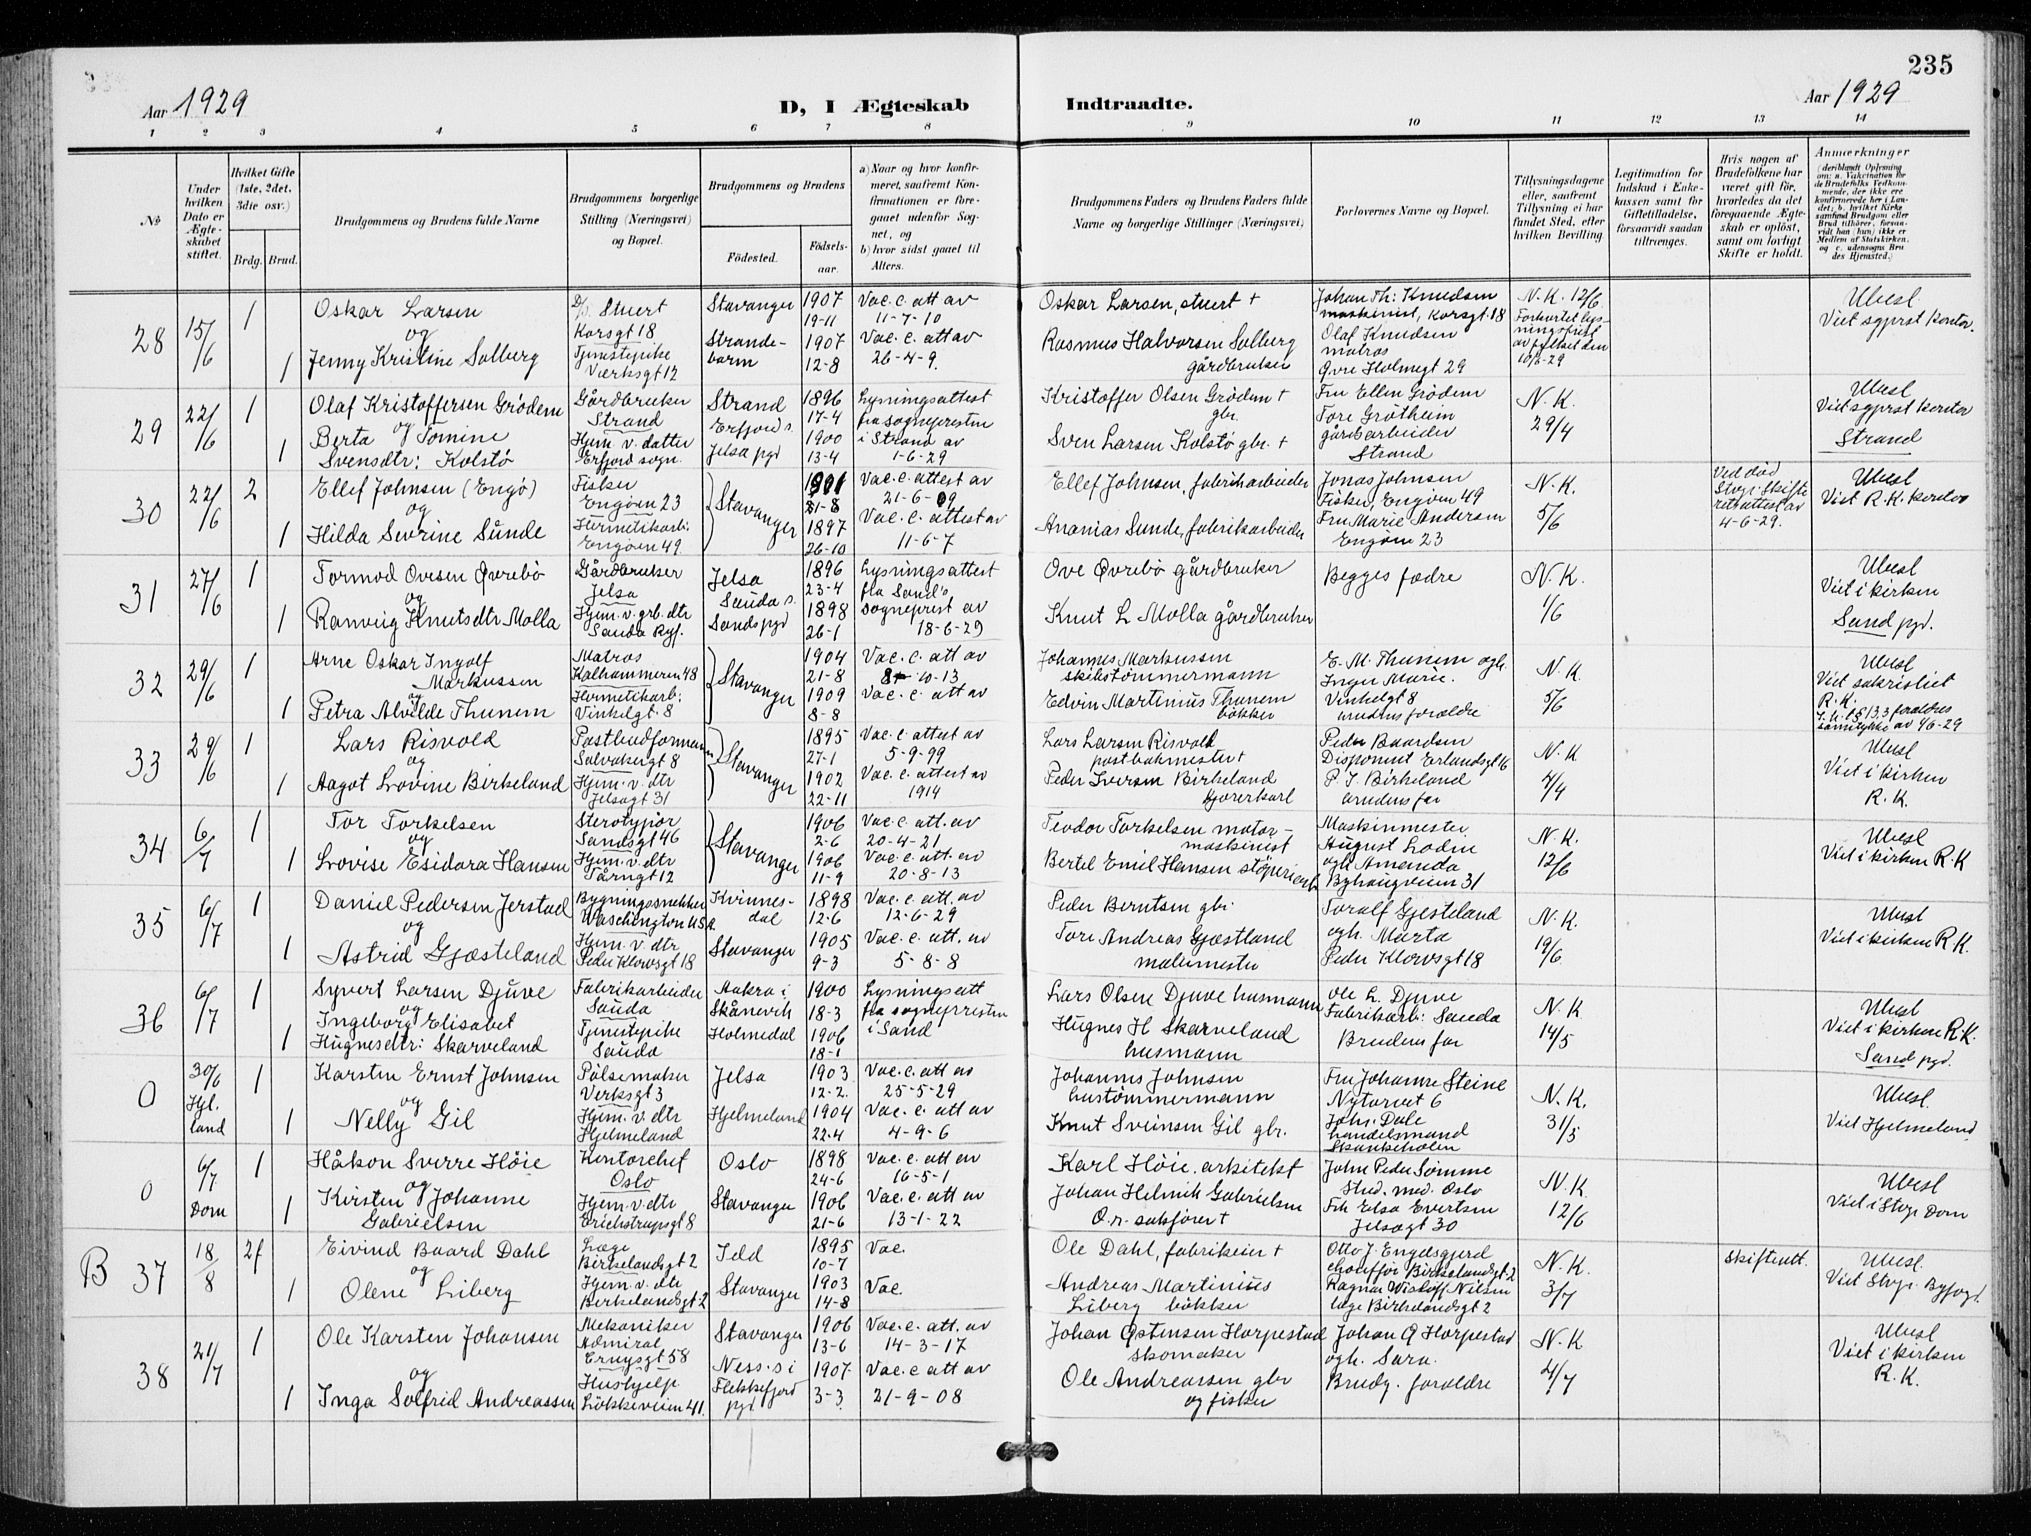 235
Aar 1929
D, I Ægteskab
Indtraadte.
Aar 1929
1 2 3 4 5 6 7 8 9 10 11 12 13 14
№
Under hvilken Dato er Ægteskabet stiftet.
Hvilket Gifte (1ste, 2det, 3die osv.)
Brdg. Brud.
Brudgommens og Brudens fulde Navne
Brudgommens borgerlige Stilling (Næringsvei) og Bopæl.
Brudgommens og Brudens
Födested.
Födselsaar.
a) Naar og hvor konfirmeret, saafremt Konfirmationen er foregaaet udenfor Sognet, og
b) hvor sidst gaaet til Alters.
Brudgommens Faders og Brudens Faders fulde Navne og borgerlige Stillinger (Næringsvei)
Forlovernes Navne og Bopæl.
Tillysningsdagene eller, saafremt Tillysning ei har fundet Sted, efter hvilken Bevilling.
Legitimation for Indskud i Enkekassen samt for Giftetilladelse, forsaavidt saadan tiltrænges.
Hvis nogen af Brudefolkene har været gift før, hvorledes da det foregaaende Ægteskab er oplöst, samt om lovligt Skifte er holdt.
Anmærkninger
28 15/6 1 Oskar Larsen
og
1 Jenny Kristine Solberg
D/s. Stuert
Korsgt 18
Tjenestepike
Værksgt 12
Stavanger
Strandebarm
1907
19-11
1907
12-8
Vac. c. att av
11-7-10
Vac. c. att av
26-4-9.
Oskar Larsen, stuert +
Rasmus Halvorsen Solberg
gårdbruker
Johan Th: Knudsen
maskinist, Korsgt. 18
Olaf Knudsen
matros
Øvre Holmegt 29
N.K. 12/6
Forkortet lysningsfrist
av fylket den
10/6-29
Ubesl.
Viet sgprst kontor.
29 22/6 1 Olaf Kristoffersen Grødem
og
1 Berta Tomine
Svensdtr: Kolstø
Gårdbruker
Strand
Hjem. v. datter
Erfjord sogn.
Strand
Erfjord s.
Jelsa pgd
1896
17-4
1900
13-4
Lysningsattest
fra sognepresten
i Strand av
1-6-29
Kristoffer Olsen Grødem +
gbr.
Sven Larsen Kolstø gbr. +
Fru Ellen Grødem
Tore Grøtheim
gårdsarbeider
Strand
N.K.
29/4
Ubesl
Viet sgprst kontor
Strand
30 22/6 2 Ellef Johnsen (Engø)
og
1 Hilda Severine Sunde
Fisker
Engøen 23
Hermetikarb:
Engøen 49
Stavanger
1901
31-8
1897
26-10
Vac. c. attest av
21-6-09
Vac. c. attest av
11-6-7
Ellef Johnsen, fabrikarbeider
Ananias Sunde, fabrikarbeider
Jonas Johnsen
Fisker, Engøen 49
Fru Marie Andersen
Engøen 23
N.K.
5/6
Ved död
Stvgr. Skifte
rett attest av
4-6-29.
Ubesl
Viet R.K. kontor
31 27/6 1 Tormod Ovesen Øvrebø
og
1 Ranveig Knutsdtr Molla
Gårdbruker
Jelsa
Hjem. v. grb. dtr
Sauda Ryf.
Jelsa
Sauda s.
Sands pgd
1896
23-4
1898
26-1
Lysningsattest
fra Sand's
sogneprest av
18-6-29
Ove Øvrebø gårdbruker
Knut L Molla gårdbruker
Begges fædre
N.K.
1/6
Ubesl
Viet i kirken
Sand pgd.
32 29/6 1 Arne Oskar Ingolf
Markussen
og
1 Petra Alvilde Thunem
Matros
Kalhammeren 48
Hermetikarb:
Vinkelgt. 8
Stavanger
1904
21-8
1909
8-8
Vac. c. att av
8-10-13
Vac. c. att av
Johannes Markussen
skibstømmermann
Edvin Martinius Thunem
bøkker
E. M. Thunem ogh.
Inger Marie.
Vinkelgt 8
brudens foreldre
N.K.
5/6
Ubesl
Viet sakristiet
R.K.
foreldres
samtykke av 4/6-29
33 29/6 1 Lars Risvold
og
1 Aagot Lovine Birkeland
Postbudformann
Solvakveigt 8
Hjem. v. dtr
Jelsagt 31
Stavanger
1895
27-1
1902
22-11
Vac. c. attest av
5-9-99
Vac. c. attest av
1914
Lars Larsen Risvold
postbokmester +
Peder Iversen Birkeland
kjørerkarl
Peder Baardsen
Disponent Erlandsgt 16
P. I. Birkeland
brudens far
N.K
4/4
Ubesl
Viet i kirken
R.K.
34 6/7 1 Tor Torkelsen
og
1 Lovise Esidora Hansen
Sterotypør
Sandsgt 46
Hjem. v. dtr
Tårngt 12
Stavanger
1906
2-6
1906
11-9
Vac. c. att. av
20-4-21
Vac. c. att. av
20-8-13
Teodor Torkelsen motormaskinist
Bertel Emil Hansen støperiarb
Maskinmester
August Lodin
ogh Amanda
Byhaugveien 31
N.K.
12/6
Ubesl
Viet i kirken R.K
35 6/7 1 Daniel Pedersen Jerstad
og
1 Astrid Gjæsteland
Bygningssnekker
Waschington U.S.A.
Hjem. v. dtr
Peder Klowsgt 18
Kvinnesdal
Stavanger
1898
12-6
1905
9-3
Vac. c. att. av
12-6-29
Vac. c. att. av
5-8-8
Peder Berntsen gbr.
Tore Andreas Gjæstland
malermester
Toralf Gjesteland
ogh. Marta
Peder Klowsgt 18
N.K.
19/6
Ubesl
Viet i kirken R.K.
36 6/7 1 Syvert Larsen Djuve
og
1 Ingeborg Elisabet
Hugnesdtr: Skarveland
Fabrikarbeider
Sauda
Tjenestepike
Sauda
Aakra i
Skånevik
Holmedal
1900
18-3
1906
18-1
Lysningsatt
fra sogneprresten
i Sand
Lars Olsen Djuve husmann
Hugnes H Skarveland
husmann
Ole L. Djuve
Fabrikarb: Sauda
Brudens far
N.K
14/5
Ubesl
Viet i kirken R.K.
Sand pgd.
0 30/6 Hjl.land 1 Karsten Ernst Johnsen
og
1 Nelly Gil
Pølsemaker
Verksgt 3
Hjem. v. dtr
Hjelmeland
Jelsa
Hjelmeland
1903
12-2.
1904
22-4
Vac. c. att av
25-5-29
Vac. c. att av
4-9-6
Johannes Johnsen
hustømmermann
Knut Sveinsen Gil gbr.
Fru Johanne Steine
Nytorvet 6
Johs. Dale
handelsmand
Skankeholen
N.K.
31/5
Ubesl.
Viet Hjelmeland
0 6/7 Dom 1 Håkon Sverre Høie
og
1 Kirsten Johanne
Gabrielsen
Kontorchef
Oslo
Hjem. v. dtr
Erichstrupsgt 8
Oslo
Stavanger
1898
24-6
1906
21-6
Vac. c. att av
16-5-1
Vac. c. att av
13-1-22
Karl Høie, arkitekt
Johan Helmik Gabrielsen
O.r. sakfører +
John Peder Sømme
Stud. med. Oslo
Frk Elsa Evertsen
Jelsagt 30
N.K
12/6
Ubesl
Viet i Stvgr Dom
B 37 18/8 2f Eivind Baard Dahl
og
1 Olene Liberg
Læge
Birkelandsgt 2
Hjem. v. dtr
Birkelandsgt 2
Idd
Stavanger
1895
10-7
1903
14-8
Vac.
Vac.
Ole Dahl, fabrikeier +
Andreas Martinius
Liberg bøkker
Otto J. Engelsgjerd
chouffør Birkelandsgt. 2
Ragnar Nilsen
læge Birkelandsgt 2
N.K.
3/7
Skifteatt.
Ubesl.
Viet Stvgr Byfogd.
38 21/7 1 Ole Karsten Johansen
og
1 Inga Solfrid Andreassen
Mekaniker
Admiral
Cruysgt 58
Hushjelp
Løkkeveien 41.
Stavanger
Ness. s i
Flekkefjord
pgd
1906
13-6
1907
3-3
Vac. c. att. av
14-3-17
Vac. c att av
21-9-08
Johan Østensen Horpestad
skomaker
Ole Andreassen gbr
og fisker
Johan Ø Horpestad
ogh. Sara.
Brudg. foreldre
N.K
4/7
Ubesl
Viet i kirken
R.K.